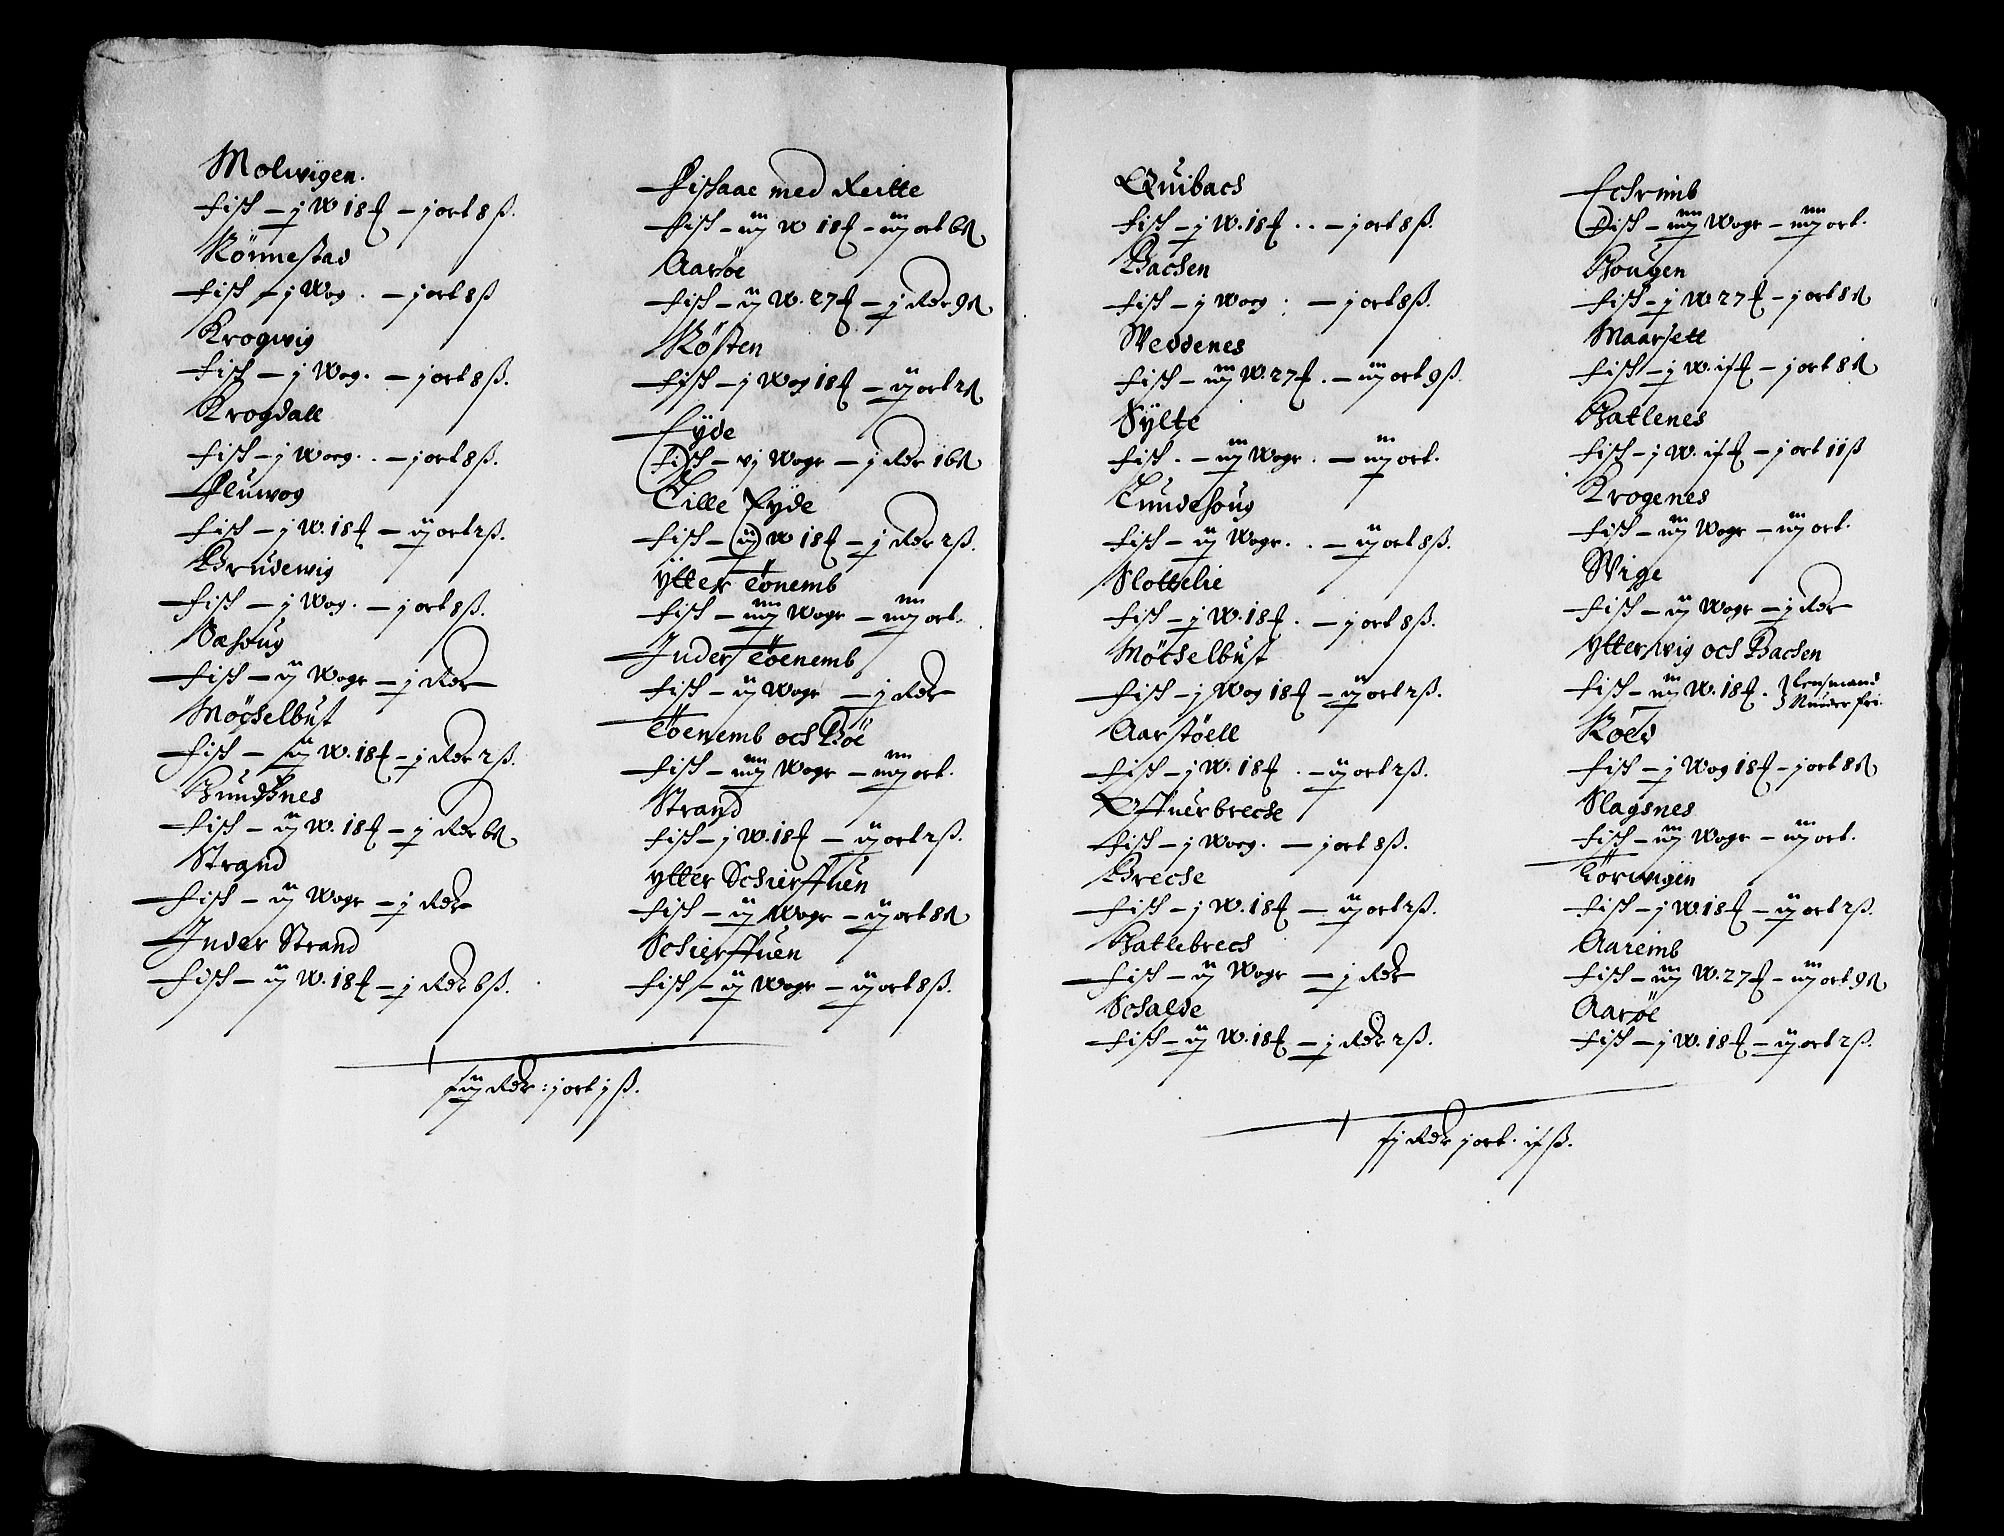 Molwigen.
Fisk – j W 18 ℔ – j ort 8 ß.
Rönnestad
Fisk – j Wog. – j ort 8 ß
Krogwig
Fisk – j Wog. – j ort 8 ß.
Krogdall
Fisk – j Woeg. . – j ort 8 ß.
Fluwog
Fisk – j W. 18 ℔ – ij ort 2 ß.
Brudewig
Fisk – j Wog. – j ort 8 ß.
Sæhoug
Fisk – ij Wogr – j Rdr
Möchelbust
Fisk – ij W. 18 ℔ – j Rdr 2 ß.
Fisk – ij W. 18 ℔ – j Rdr 6 ß
Strand
Fisk – ij Wogr – j Rdr
Inder Strand
Fisk – ij W. 18 ℔ – j Rdr 6 ß.
Fishaae med Reitte
Fisk – iij W 18 ℔ – iij ort 6 ß
Aaröe
Fisk – ij W. 27 ℔ – j Rdr 9 ß
Rösten
Fisk – j Wog 18 ℔ – ij ort 2 ß
Eyde
Fisk – vj Wogr – j Rdr 16 ß
Lille Eyde
Fisk – ij W 18 ℔ – j Rdr 2 ß.
Ÿtter Tönemb
Fisk – iiij Wogr – iiij ort.
Inder Töenemb
Fisk – ij Wogr – j Rdr
Töenemb och Böe
Fisk – iiij Wogr – iiij ort.
Strand
Fisk – j W. 18 ℔ – ij ort 2 ß.
Ytter Schierffuen
Fisk – ij Wogr – ij ort 8 ß
Schierffuen
Fisk – ij Wogr – ij ort 8 ß.
Rdr : j ort j ß.
Quibach
Fisk – j W. 18 ℔ . . – j ort 8 ß.
Bachen
Fisk – j Woeg : – j ort 8 ß.
Weddenes
Fisk – iij W. 27 ℔. – iij ort 9 ß.
Sÿlte
Fisk . – iij Wogr . – iij ort.
Lundehoug
Fisk – ij Wogr. . – ij ort 8 ß.
Slottelie
Fisk – j W. 18 ℔ . – j ort 8 ß.
Möchelbust
Fisk – j Wog 18 ℔ – ij ort 2 ß.
Aarstöell
Fisk – j W. 18 ℔ . – ij ort 2 ß.
Offuerbreche
Fisk – j Woeg. – j ort 8 ß.
Breche
Fisk – j W. 18 ℔ – ij ort 2 ß.
Batlebrech
Fisk – ij Wogr – j Rdr
Schalde
Fisk – ij W. 18 ℔ – j Rdr 2 ß.
Echrimb
Fisk – iiij Wogr – iiij ort.
Hougen
Fisk – j W 27 ℔ – j ort 8 ß
Maarsett
Fisk – j W. if ℔ – j ort 8 ß
Batlenes
Fisk – j W. if ℔ – j ort 11 ß
Krogenes
Fisk – iij Wogr – iij ort.
Wige
Fisk – ij Wogr – j Rdr
Ytterwig och Bachen
Fisk – iij W. 18 ℔. } Lensmand
Gunder fri.
Röed
Fisk – j Wog 18 ℔ – j ort 8 ß
Slagsnes
Fisk – iij Wogr – iij ort.
Törwigen
Fisk – j W 18 ℔ – ij ort 2 ß.
Aareimb
Fisk – iij W. 27 ℔ – iij ort 9 ß
Aaröe
Fisk – j W. 18 ℔ – ij ort 2 ß.
Rdr j ort. if ß.